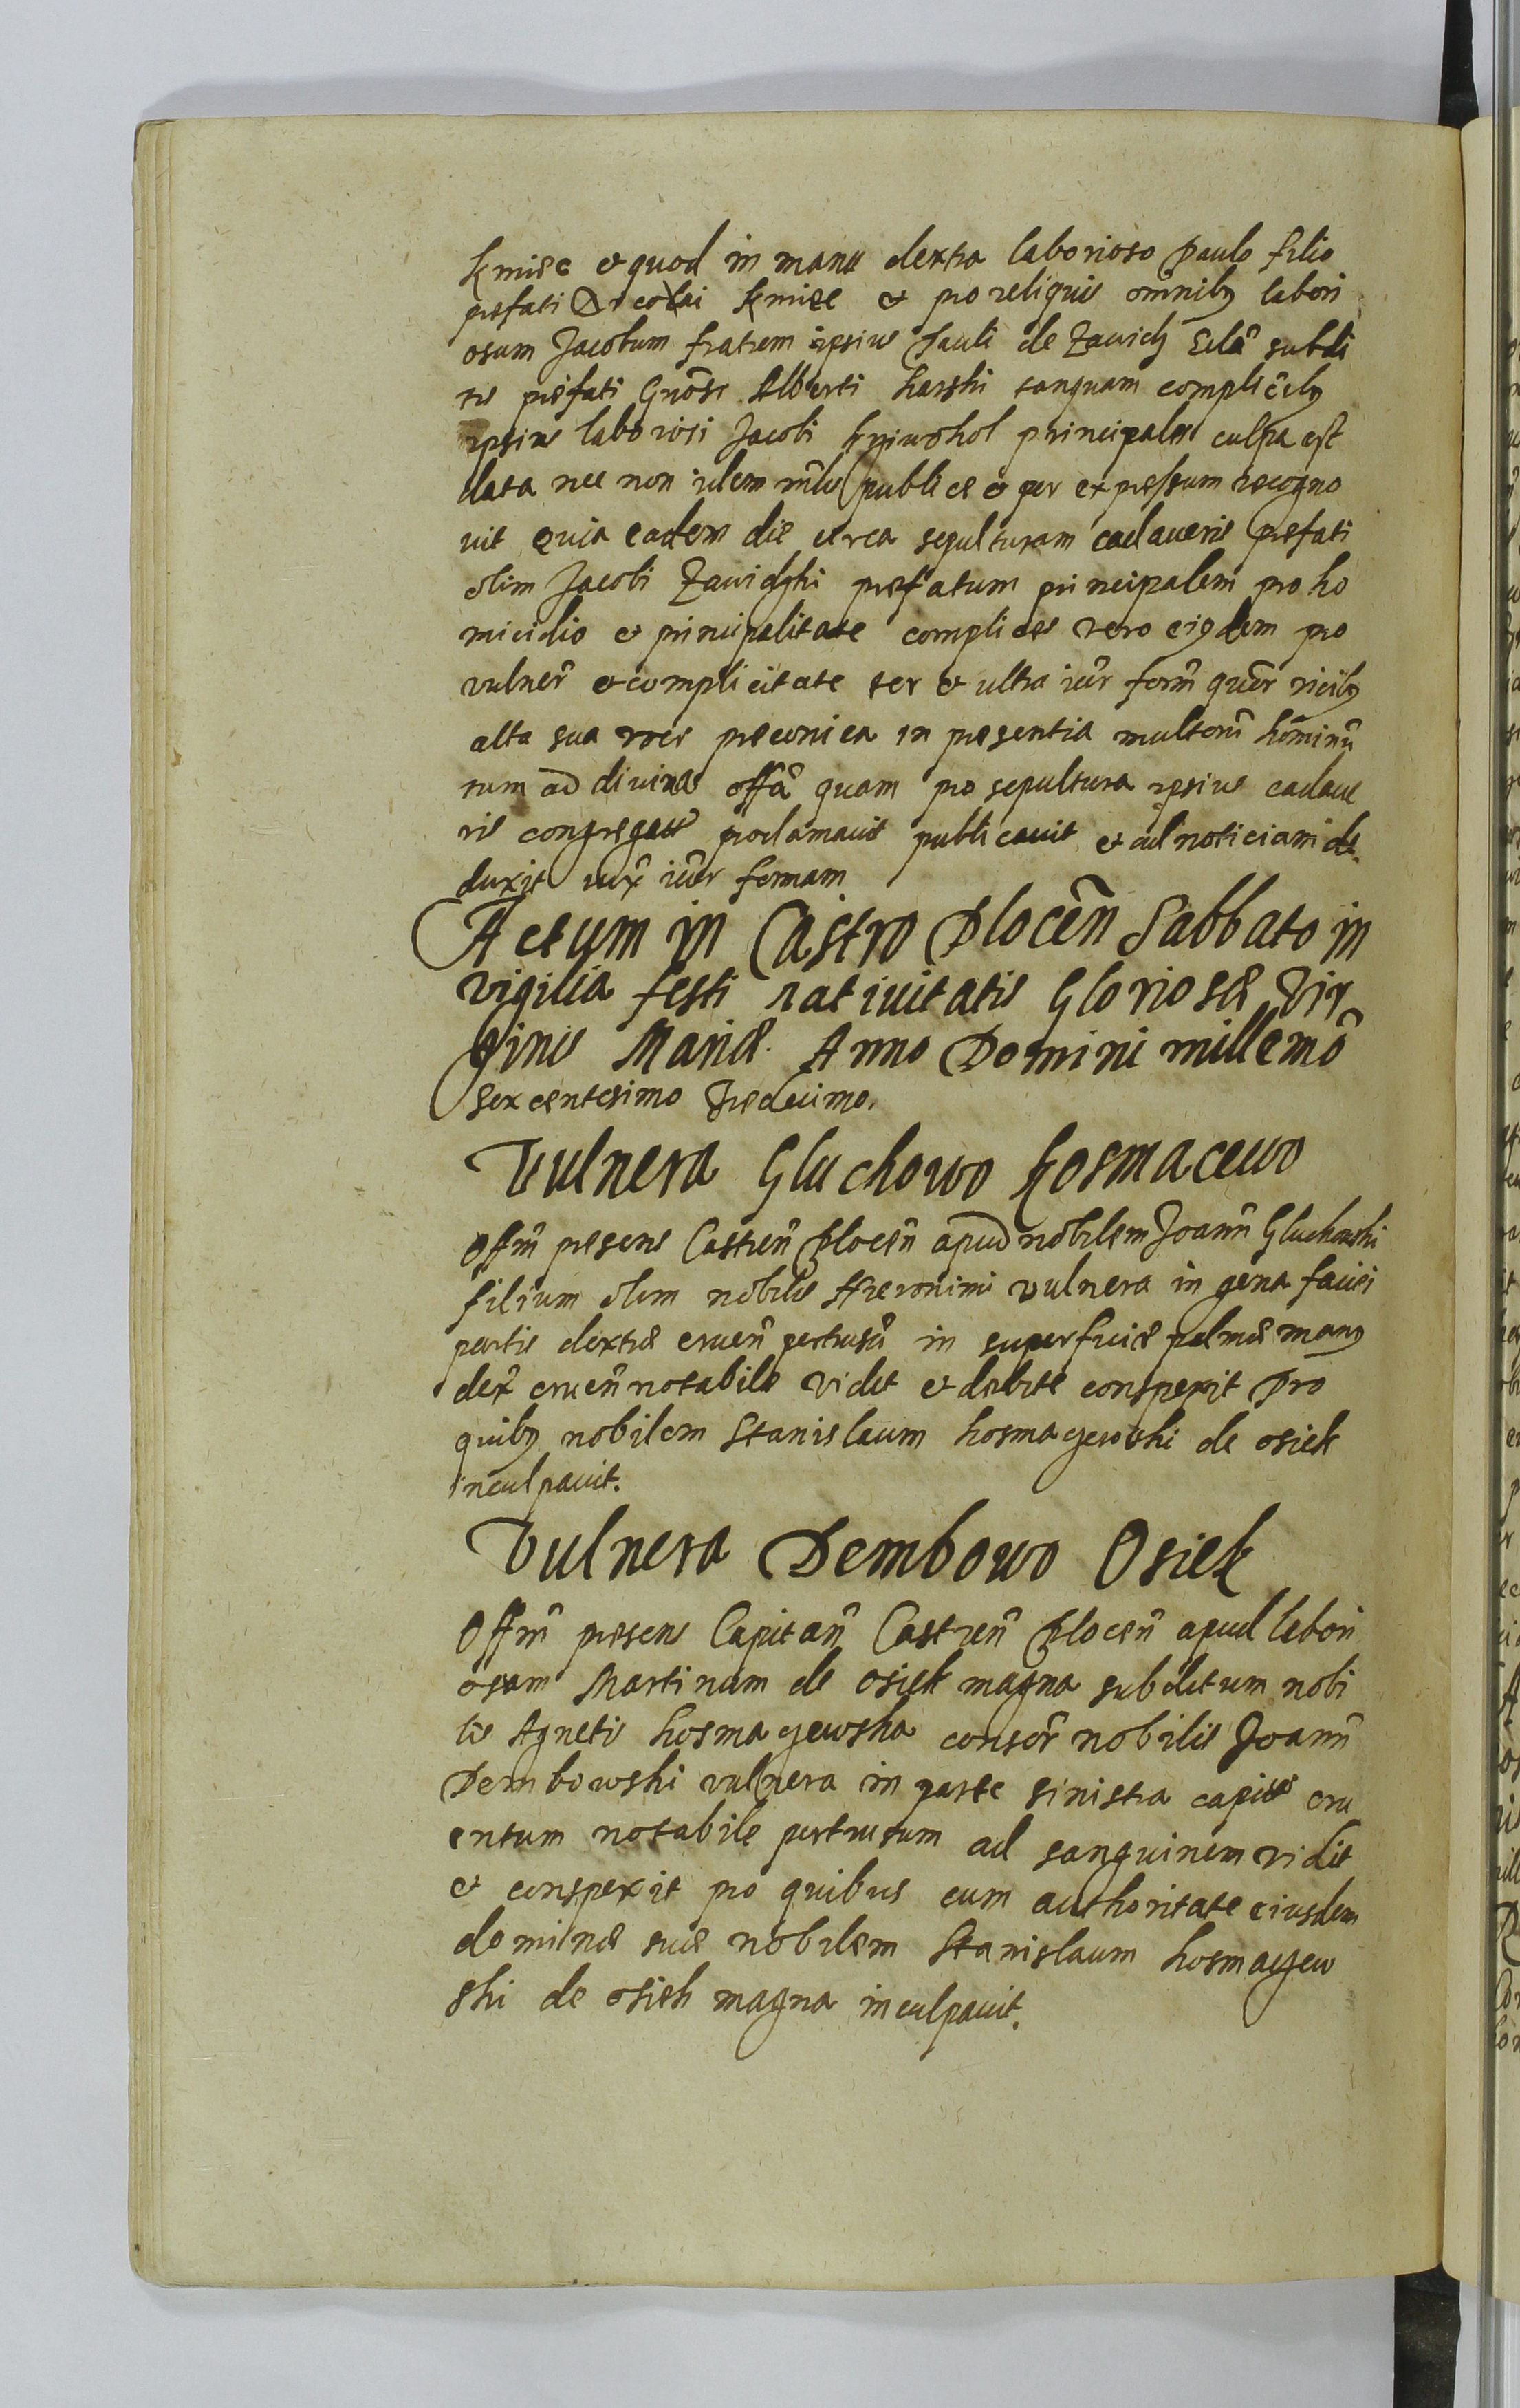 Kmiec et quod in manu dextra laborioso Paulo filio
prefati Nicolai Kmiec et pro reliquis omnibꝫ labori
osum Jacobum fratrem ipsius Pauli de Zawidz subdi
tis prefati Gnosi Alberti Karski tanquam complicibꝫ
ipsius laboriosi Jacobi principalis culpa est
data nec non idem publice et per expressum recogno
uit quia eadem die circa sepulturam cadaueris prefati
olim Jacobi Zawidzki prefatum principalem pro ho
micidio et principalitate complices vero eiꝰdem pro
vulner̃ et complicitate ter et ultra iur̃ form̃ vicibꝫ
alta sua voce preconica in presentia multorũ hominũ
tum ad divina offa quam pro sepultura ipsius cadaue
ris congregatt proclamauit publicauit et ad noticiam de
duxit iux̃ iur̃ formam
Actum in Castro Plocen̄ Sabbato in
vigilia festi natiuitatis Gloriosæ Vir
ginis Mariæ Anno Domini millemō
Sexcentesimo Tredecimo.
Vulnera Gluchowo Kosmacewo
Offm̃ presens Castren̄ Plocen̄ apud nobilem Joann̄ Gluchowski
filium olim nobilis Hieronimi vulnera in gena faciei
partis dextræ cruen̄ pertusũ in superficie palmæ manꝰ
dex̃ cruen̄ notabile vidit et debite conspexit Pro
quibꝫ nobilem Stanislaum Kosmaczewski de Osiek
inculpauit.
Vulnera Dembowo Osiek
Offm̃ presens Capitan̄ Castren̄ Plocen̄ apud labori
osum Martinum de Osiek magna subditum nobi
lis Agnetis Kosmaczewska consor̃ nobilis Joann̄
Dembowski vulnera in parte sinistra capitis cru
entum notabile pertusum ad sanguinem vidit
et conspexit pro quibus cum authoritate eiusdem
dominæ suæ nobilem Stanislaum Kosmaczew
ski de Osiek magna inculpauit.